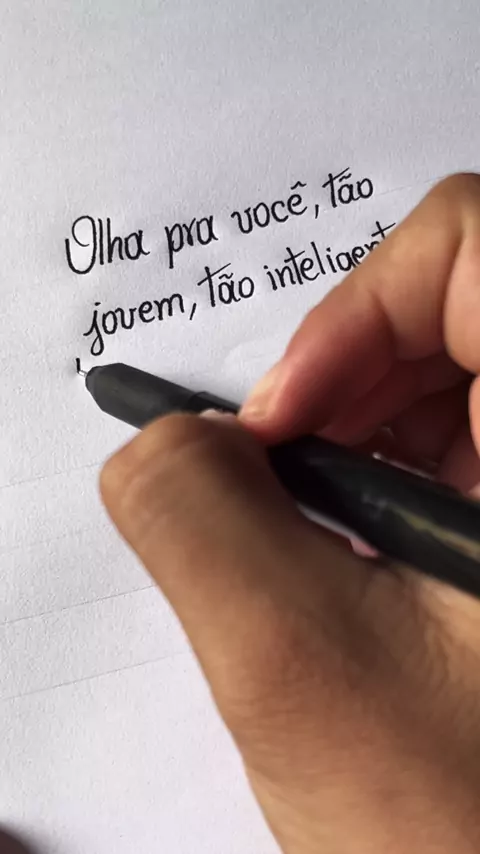 Olha pra você, tão
jovem, tão